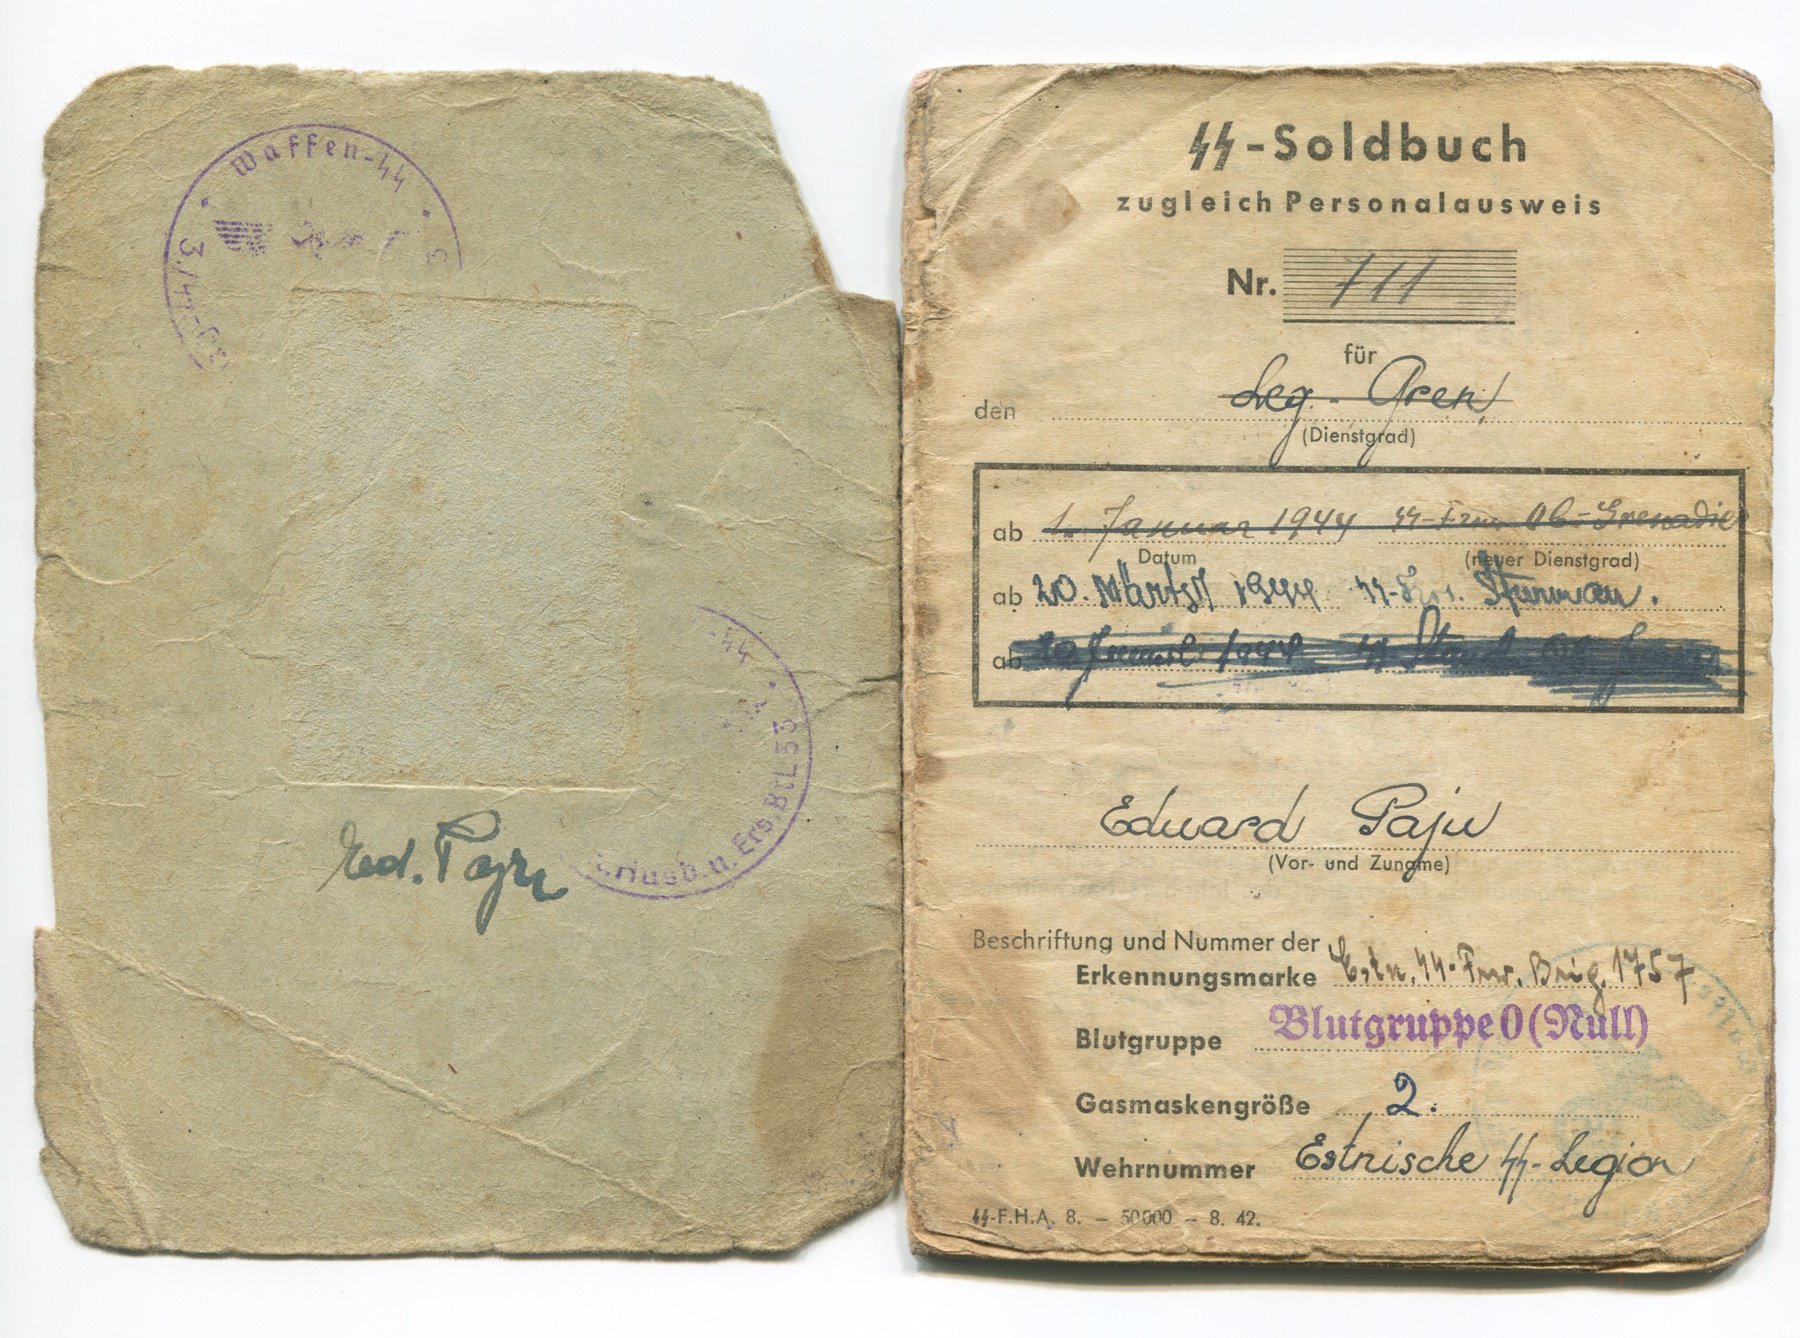 Waffen-SS
3./SS-
SS
Ausb. u. Ers. Btl. 53
Ed. Paju
SS-Soldbuch
zugleich Personalausweis
Nr. 711
für
den Leg.-Gren.
(Dienstgrad)
ab 1. Januar 1944 SS-Frw. Ob-Grenadier
Datum (neuer Dienstgrad)
ab 20. Märtsil 1944 SS-Frw. Sturmman.
ab 1944
Eduard Paju
(Vor- und Zuname)
Beschriftung und Nummer der
Erkennungsmarke Estn. SS-Frw. Brig. 1757
Blutgruppe Blutgruppe 0 (Null)
Gasmaskengröße 2.
Wehrnummer Estnische SS-Legion
SS-F.H.A. 8. – 50000 – 8. 42.